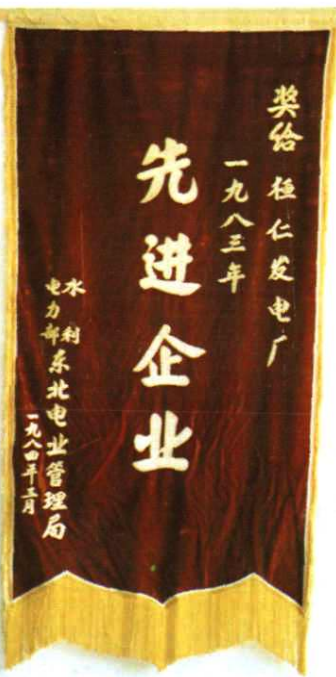 奖给 桓仁发电厂
一九八三年
先进企业
水利
电力部东北电业管理局
一九八四年三月